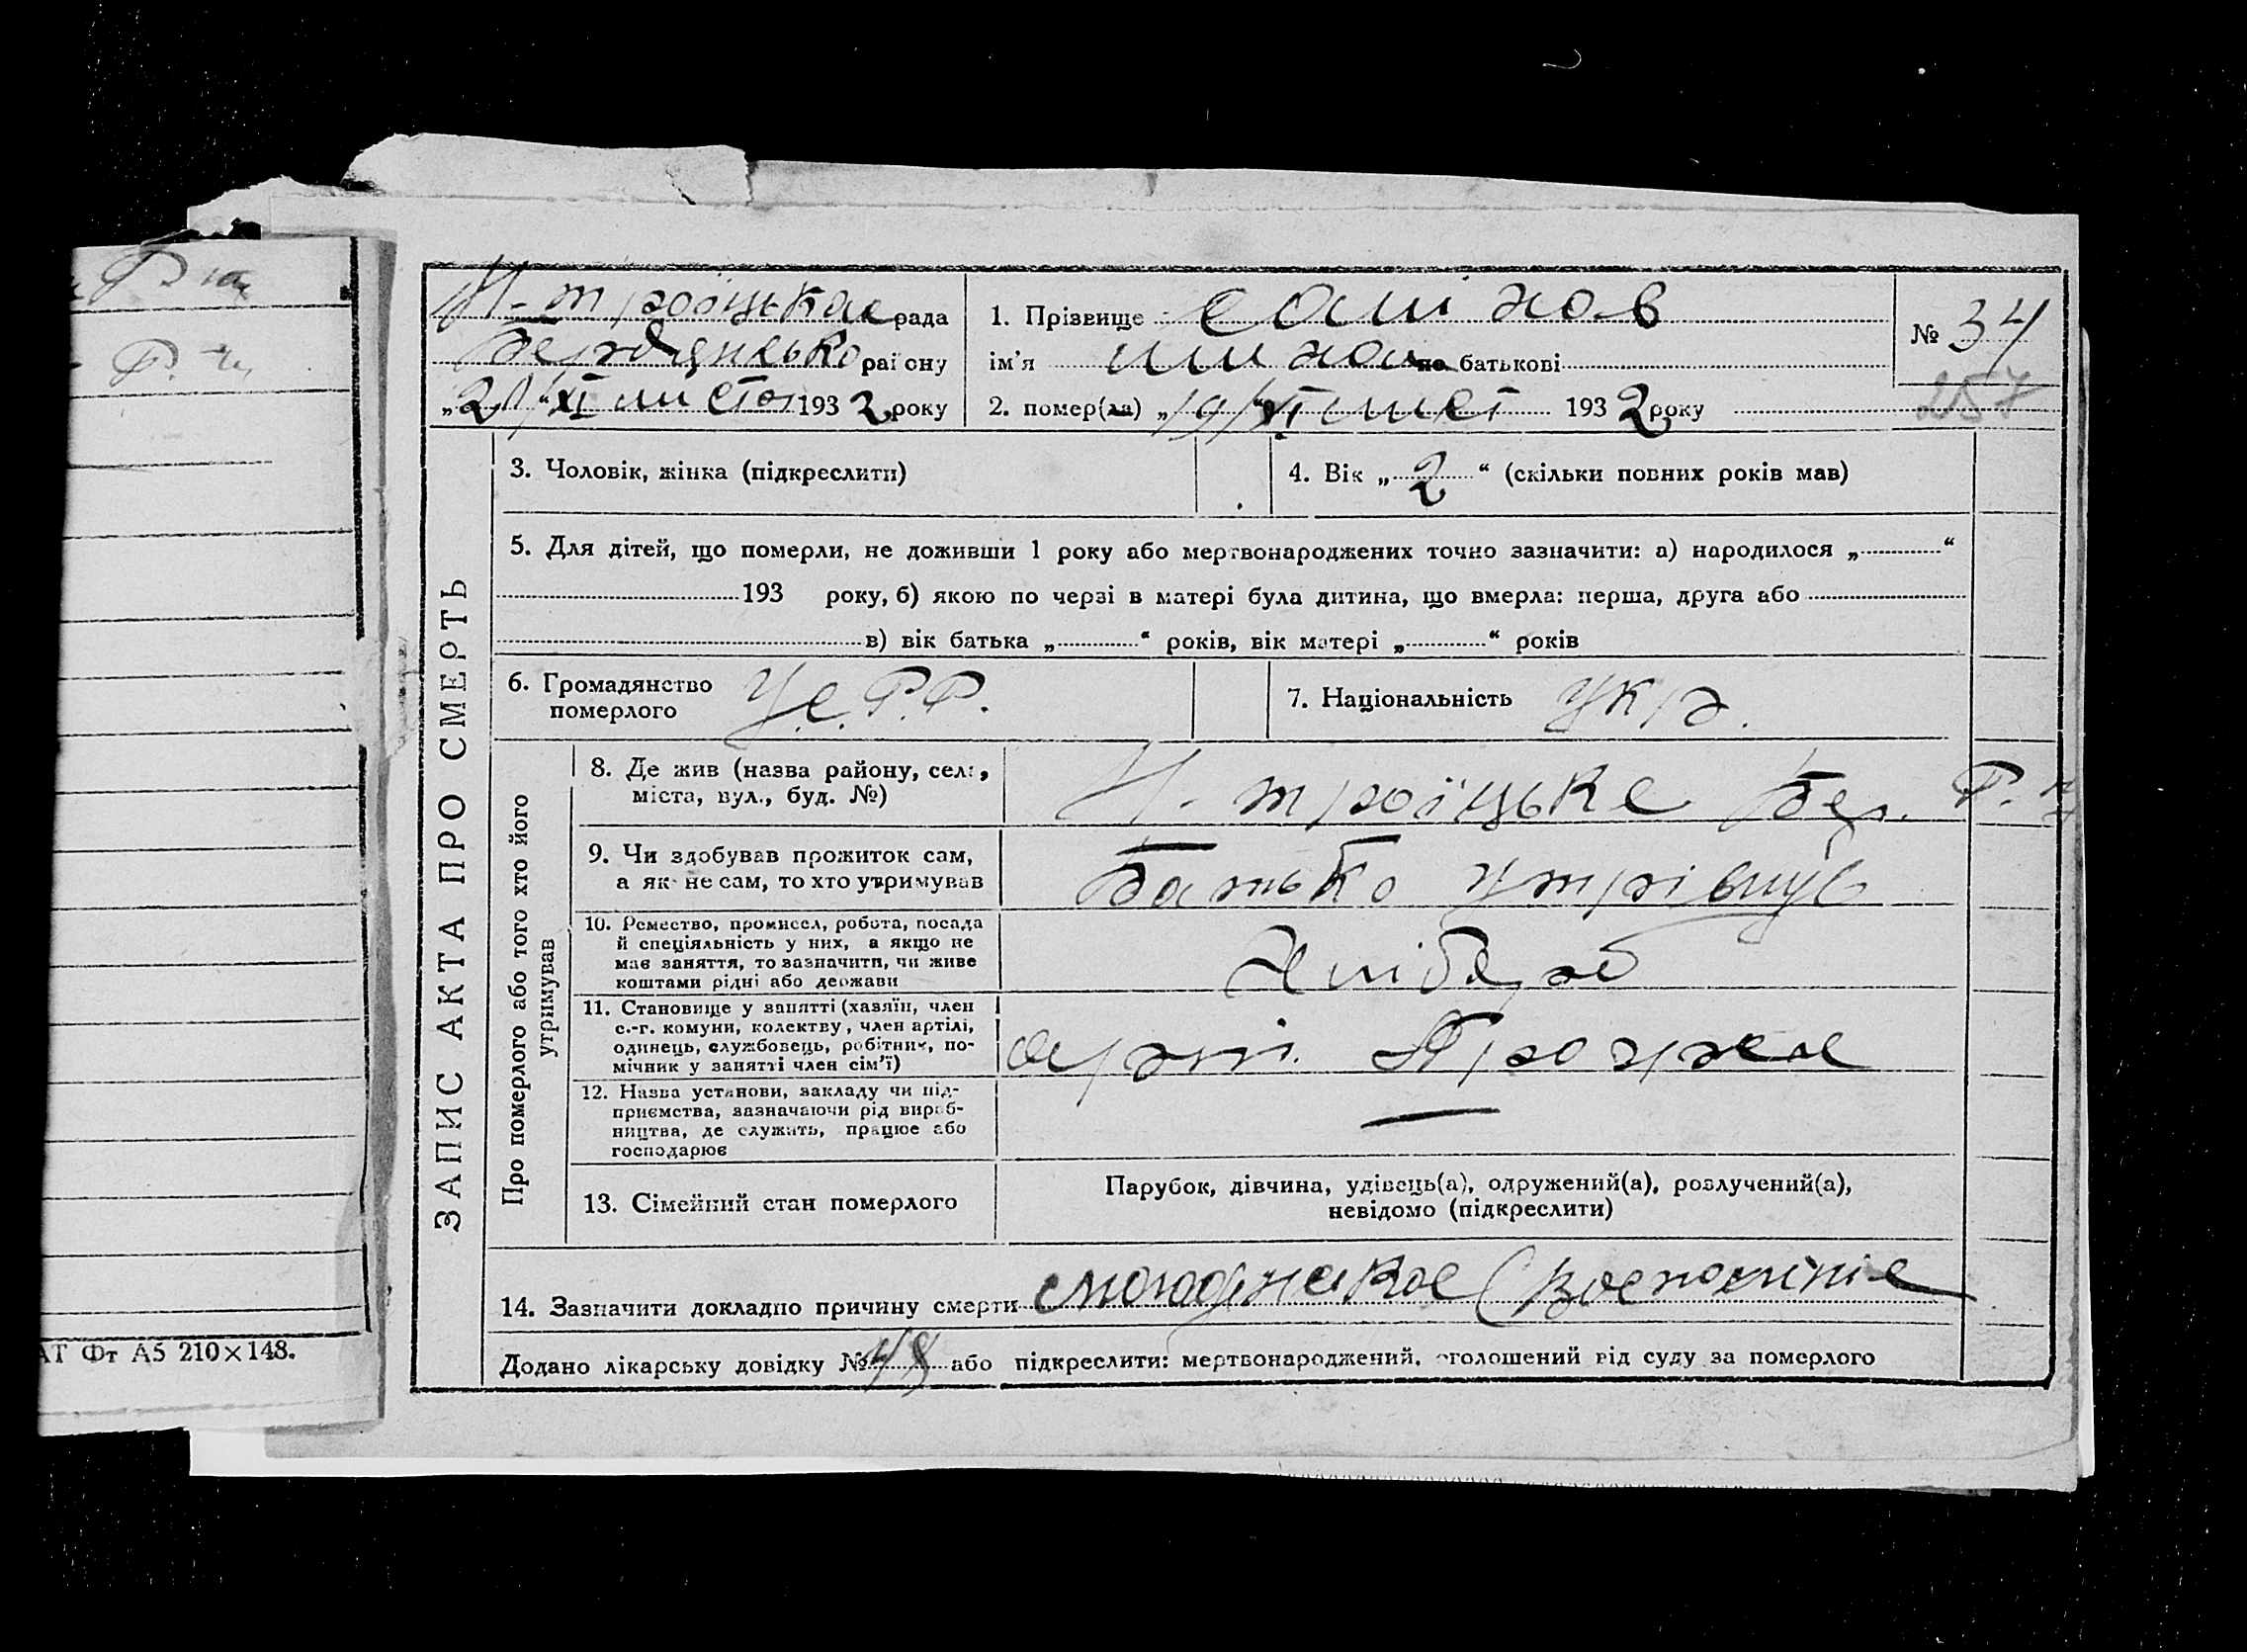 Н-троїцька рада
Бердянсько району
„21“ XI листоп 1932 року
1. Прізвище
ім'я по батькові
2. помер(ла) „19“ XI лист 1932 року
№ 34
257
ЗАПИС АКТА ПРО СМЕРТЬ
3. Чоловік, жінка (підкреслити)
4. Вік „2“ (скільки повних років мав)
5. Для дітей, що померли, не доживши 1 року або мертвонароджених точно зазначити: а) народилося „ “
193 року, б) якою по черзі в матері була дитина, що вмерла: перша, друга або
в) вік батька „ “ років, вік матері „ “ років
6. Громадянство
померлого
У.С.Р.Р.
7. Національність Укр.
Про померлого або того хто його
утримував
8. Де жив (назва району, села,
міста, вул., буд. №)
Н-троїцьке Бер. Р.
9. Чи здобував прожиток сам,
а як не сам, то хто утримував
Батько
10. Ремество, промисел, робота, посада
й спеціяльність у них, а якщо не
має заняття, то зазначити, чи живе
коштами рідні або держави
Хлібороб
11. Становище у занятті (хазяїн, член
с.-г. комуни, колективу, член артілі,
одинець, службовець, робітник, по-
мічник у занятті член сім'ї)
12. Назва установи, закладу чи під-
приємства, зазначаючи рід вироб-
ництва, де служить, працює або
господарює
—
13. Сімейний стан померлого
Парубок, дівчина, удівець(а), одружений(а), розлучений(а),
невідомо (підкреслити)
14. Зазначити докладно причину смерти
Додано лікарську довідку № 48 або підкреслити: мертвонароджений, оголошений від суду за померлого
АТ Фт А5 210×148.